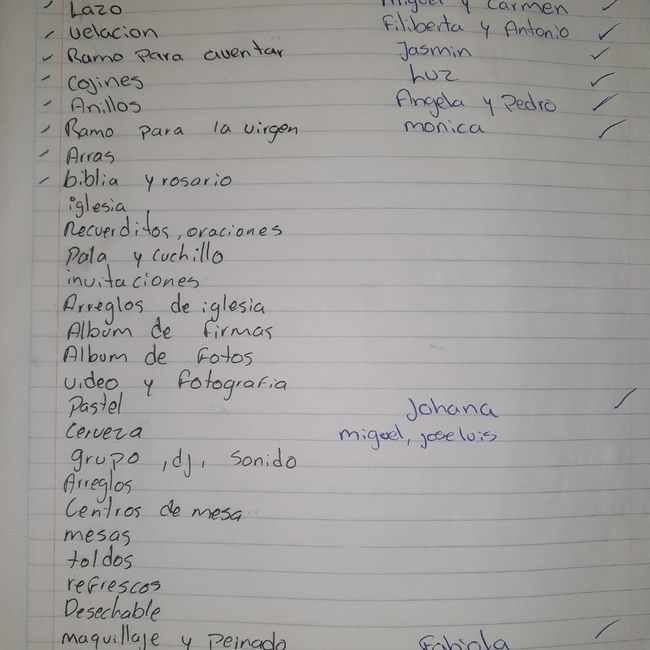 Lazo Miguel y Carmen
velacion Filiberta y Antonio
Ramo para aventar Jasmin
Cojines Luz
Anillos Angela y Pedro
Ramo para la virgen monica
Arras
biblia y rosario
iglesia
Recuerditos, oraciones
Pala y cuchillo
invitaciones
Arreglos de iglesia
Album de firmas
Album de Fotos
video y fotografia
Pastel Johana
Cerveza miguel, jose luis
grupo, dj, sonido
Arreglos
Centros de mesa
mesas
toldos
refrescos
Desechable
maquillaje y Peinado Fabiola